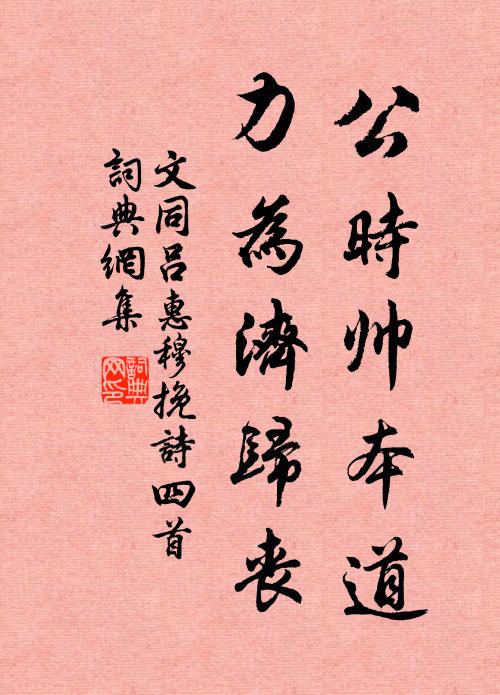 公時帅本道
力為濟歸喪
文同吕惠穆挽詩四首
詞典網集
詞典网印